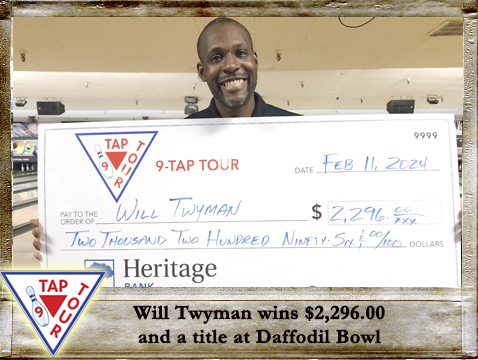 TAP
TOUR
TAP
TOUR
9
9999
9-TAP TOUR
DATE FEB 11, 2024
PAY TO THE
ORDER OF WILL TWYMAN $ 2,296.00/xxx
TWO THOUSAND TWO HUNDRED NINETY-SIX & 00/100 DOLLARS
Heritage
BANK
TAP
TOUR
9
Will Twyman wins $2,296.00
and a title at Daffodil Bowl